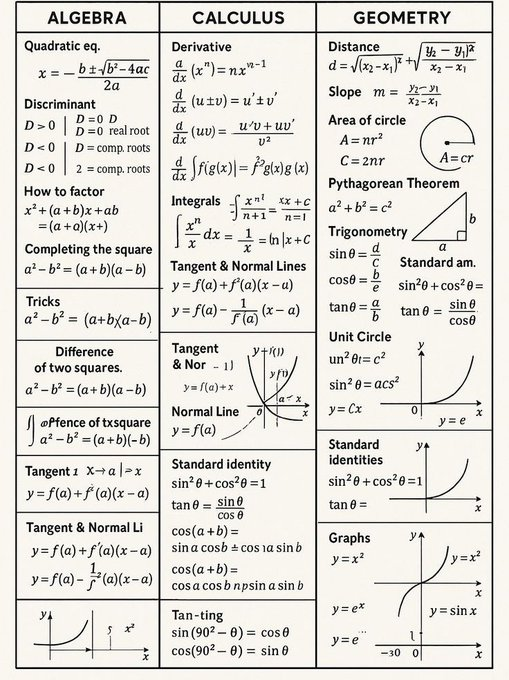 ALGEBRA
Quadratic eq.
x = − b ± √b²−4ac / 2a
Discriminant
D > 0 | D = 0 D
D = 0 real root
D < 0 | D = comp. roots
D < 0 | 2 = comp. roots
How to factor
x² + (a + b)x + ab
= (a + a)(x+)
Completing the square
a² − b² = (a + b)(a − b)
Tricks
a² − b² = (a+b)(a−b)
Difference
of two squares.
a² − b² = (a + b)(a − b)
of txsquare
a² − b² = (a + b)(-b)
Tangent 1 x→a | = x
y = f(a) + f′(a)(x − a)
Tangent & Normal Li
y = f(a) + f′(a)(x − a)
y = f(a) − 1/f²(a)(x − a)
y
x²
x
CALCULUS
Derivative
a/dx (xⁿ) = nxⁿ⁻¹
d/dx (u ± v) = u′ ± v′
d/dx (uv) = u′v + uv′ / v²
d/dx ∫f(g(x)| = g(x)g(x)
Integrals
n+1 = n=1
∫ xⁿ/x dx = 1/x = (n|x + C
Tangent & Normal Lines
y = f(a) + f′(a)(x − a)
y = f(a) − 1/f′(a) (x − a)
Tangent
& Nor − 1J
y = f(a) + x
Normal Line
y = f(a)
y
0
a − x
x
Standard identity
sin²θ + cos²θ = 1
tan θ = sin θ / cos θ
cos(a + b) =
sin a cosb ± cos a sin b
cos(a + b) =
cos a cos b npsin a sin b
Tan-ting
sin (90² − θ) = cos θ
cos(90² − θ) = sin θ
GEOMETRY
Distance
d = √(x₂−x₁)² + √(y₂ − y₁)² / x₂ − x₁
Slope m = y₂−y₁ / x₂−x₁
Area of circle
A = nr²
C = 2nr
A = cr
Pythagorean Theorem
a² + b² = c²
b
a
Trigonometry
sin θ = d/c
cosθ = b/e
tanθ = a/b
Standard am.
sin²θ + cos²θ =
tan θ = sin θ / cosθ
Unit Circle
un²θt = c²
sin²θ = acs²
y = Cx
y
0
x
y = e
Standard
identities
sin²θ + cos²θ = 1
tan θ =
y
x
Graphs
y = x²
y
y = x²
x
y = eˣ
y = sin x
y = e
−30
0
x